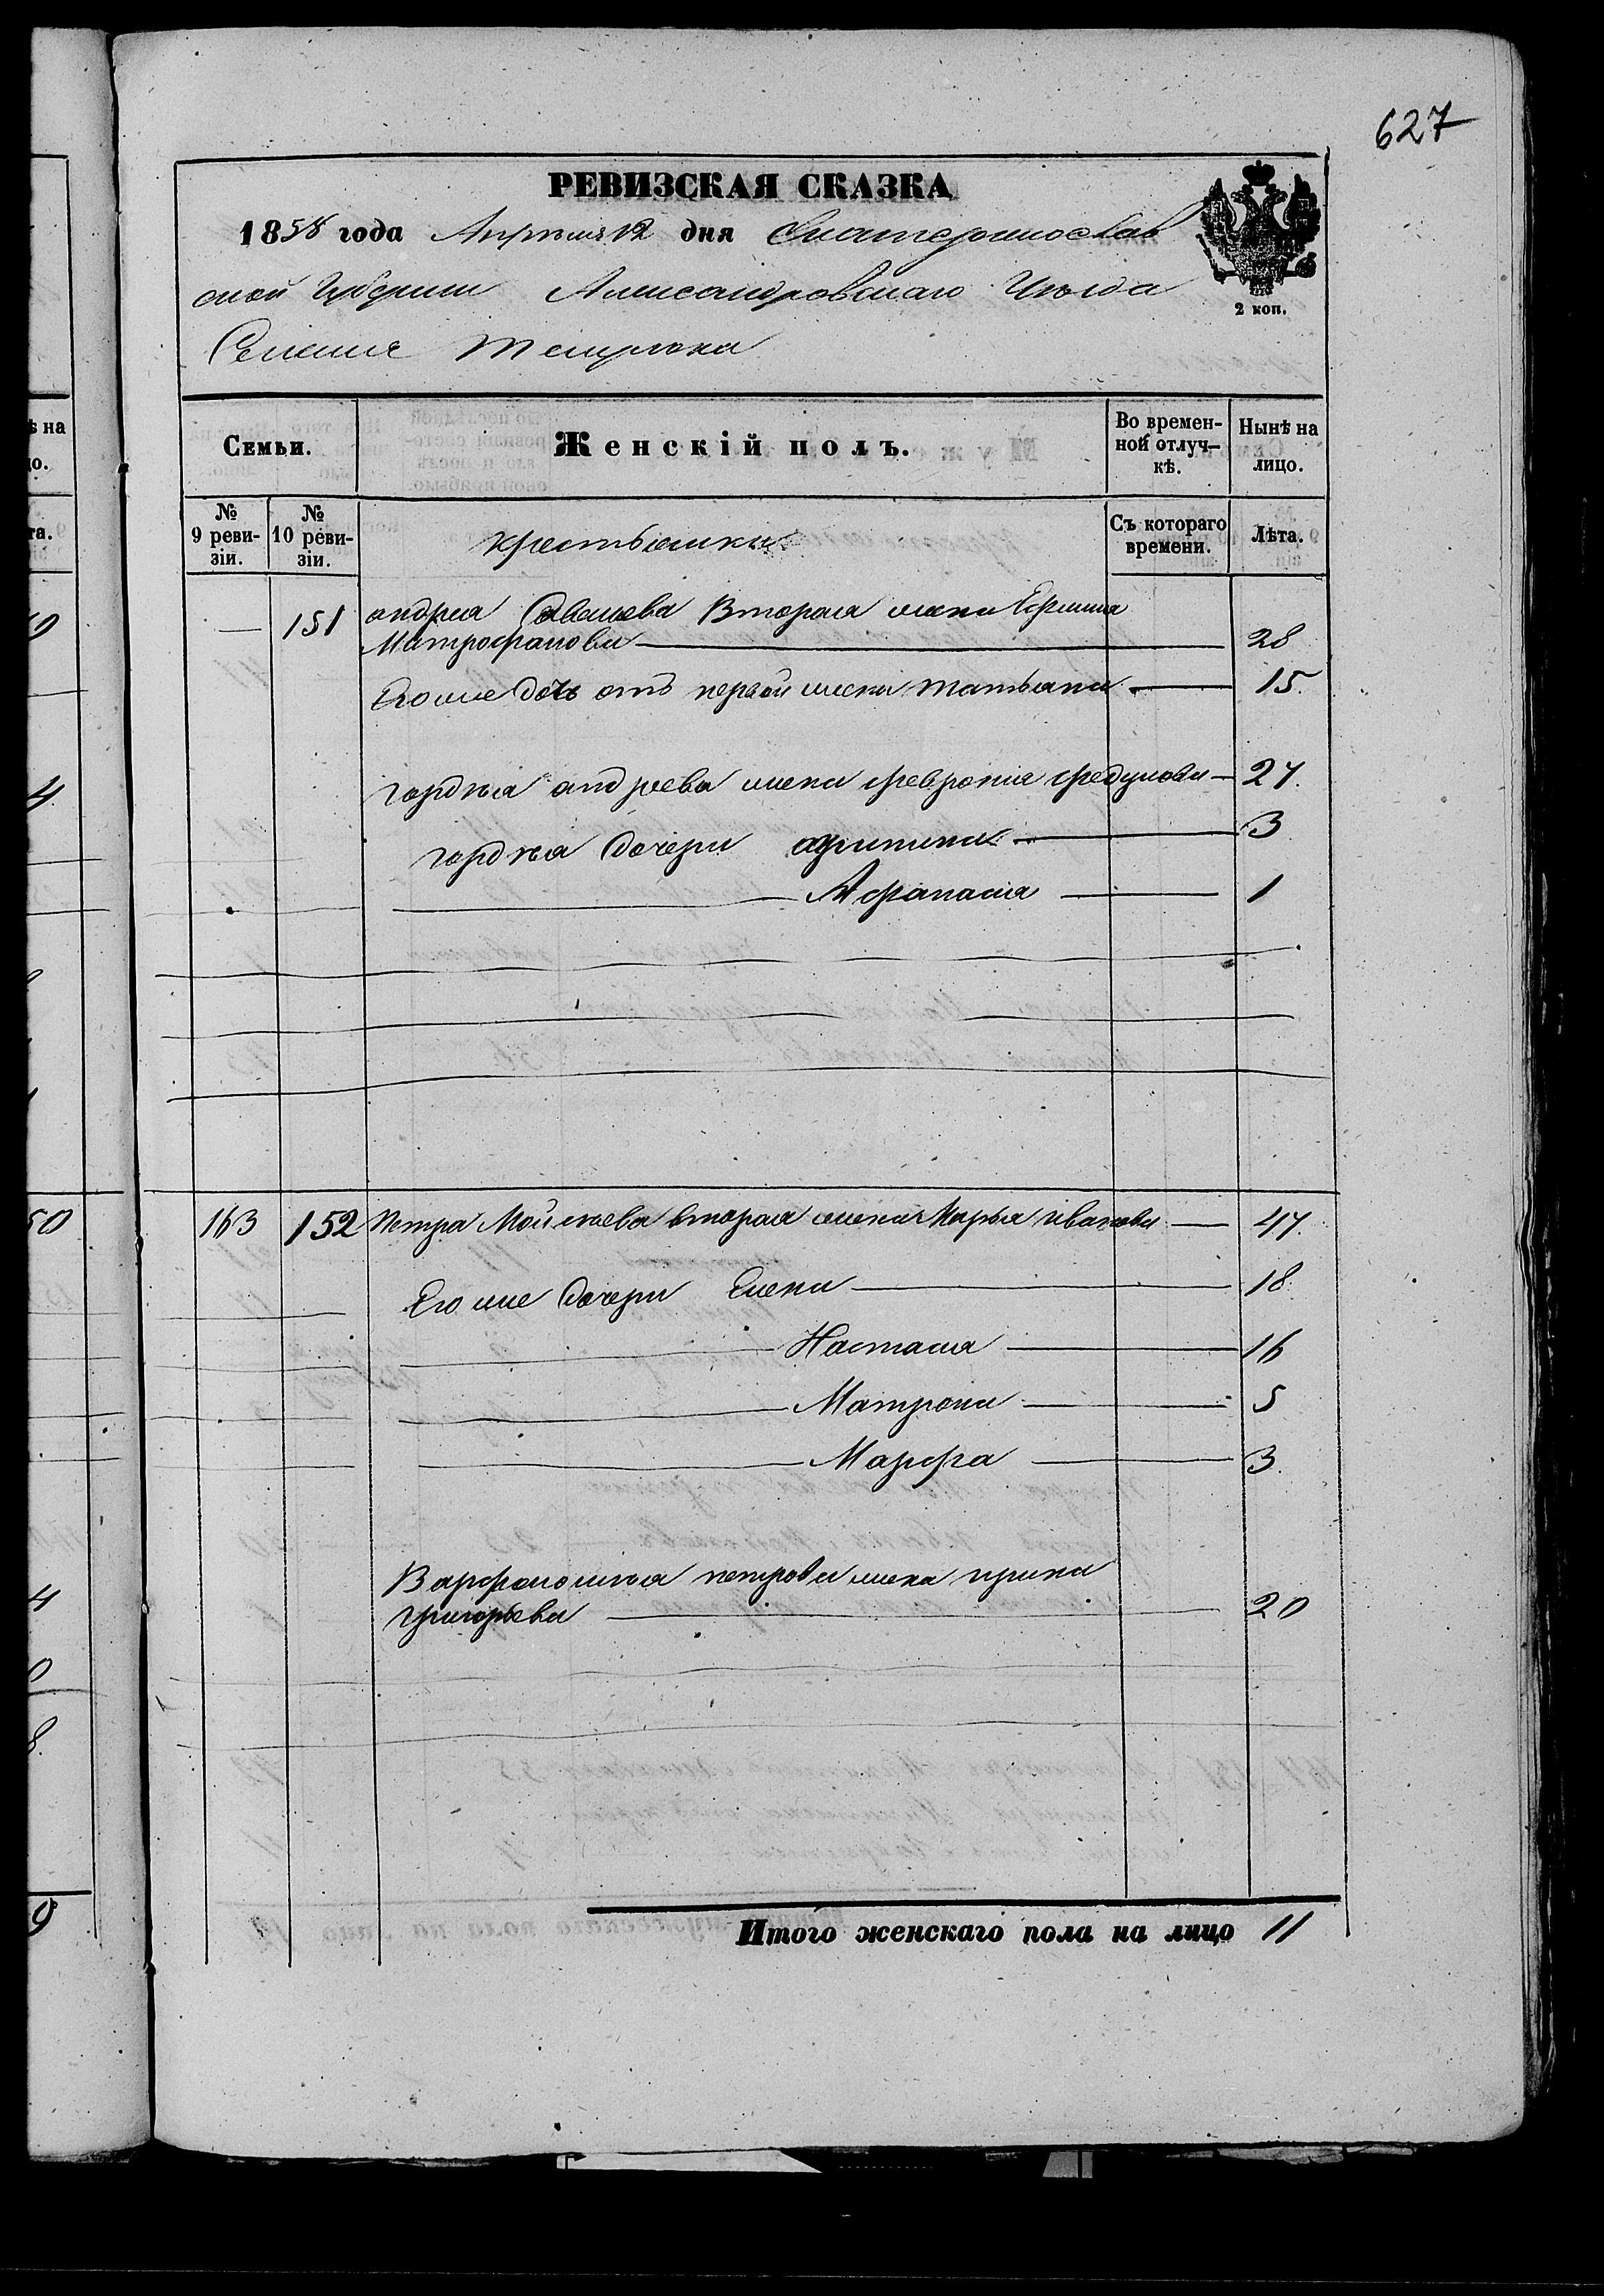 627
РЕВИЗСКАЯ СКАЗКА
1858 года Апрѣля 12 дня Екатеринослав
ской Губернiи Александровскаго Уѣзда
Селенiя Темрюка
2 коп.
Семьи.
Женскiй полъ.
Во времен-
ной отлуч-
кѣ.
Нынѣ на
лицо.
№
9 реви-
зiи.
№
10 реви-
зiи.
крестьянки
Съ котораго
времени.
Лѣта.
— 151 андрея Савельева Вторая жена
Митрофанова — 28
Его же дочь отъ первой жены татьяна — 15.
гордѣя андреева жена феврония — 27.
гордѣя дочери — 3
— Афанасия — 1
163 152 Петра Мойсѣева вторая жена Марья иванова — 47.
Его же дочери Елена — 18.
— Настасия — 16
— Матрона — 5
— Марфа — 3.
Варфоломѣя петрова жена ирина
григорьева — 20
Итого женскаго пола на лицо 11